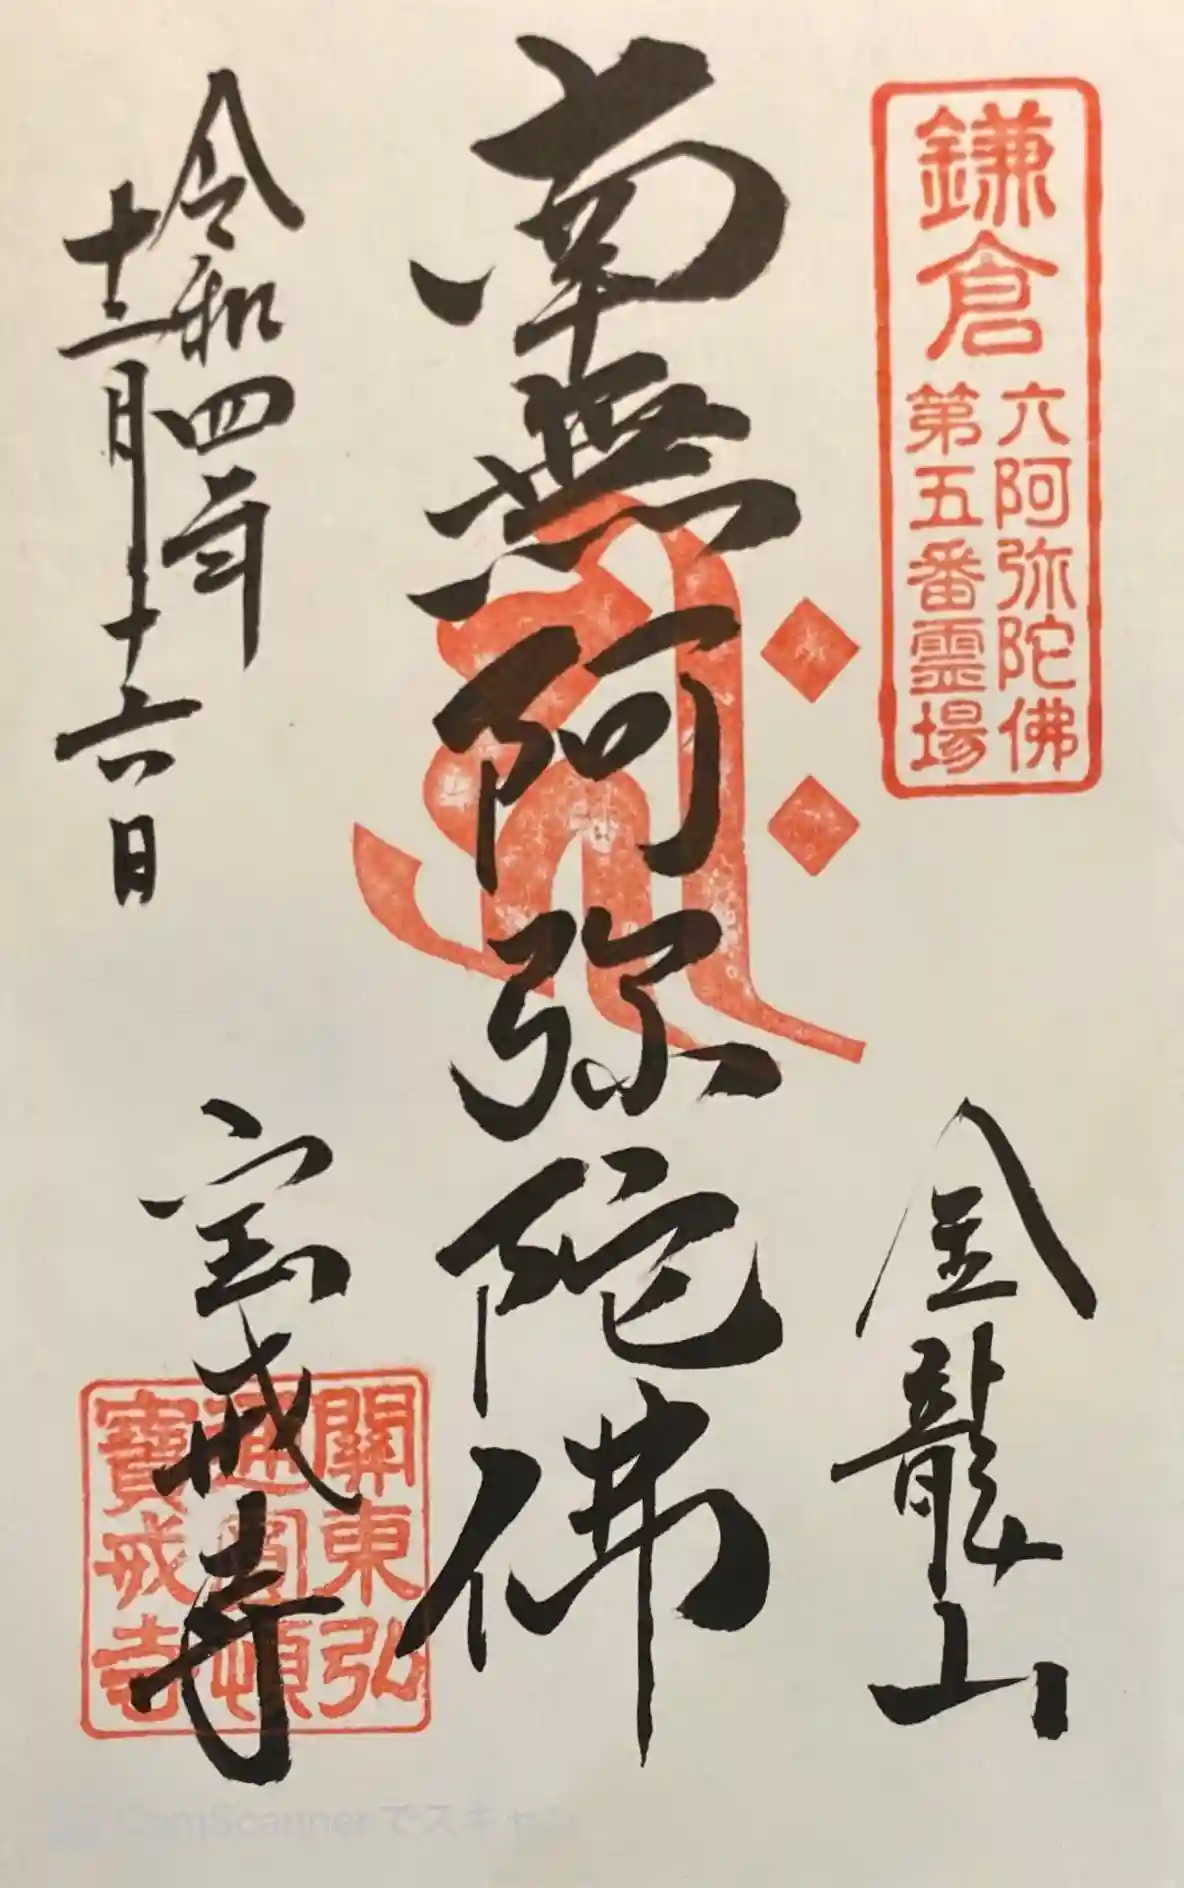 鎌倉
六阿弥陀佛
第五番霊場
金龍山
南無阿弥陀佛
令和四年
十二月十六日
宝戒寺
關東弘
通圓頓
寶戒寺
CamScannerでスキャン